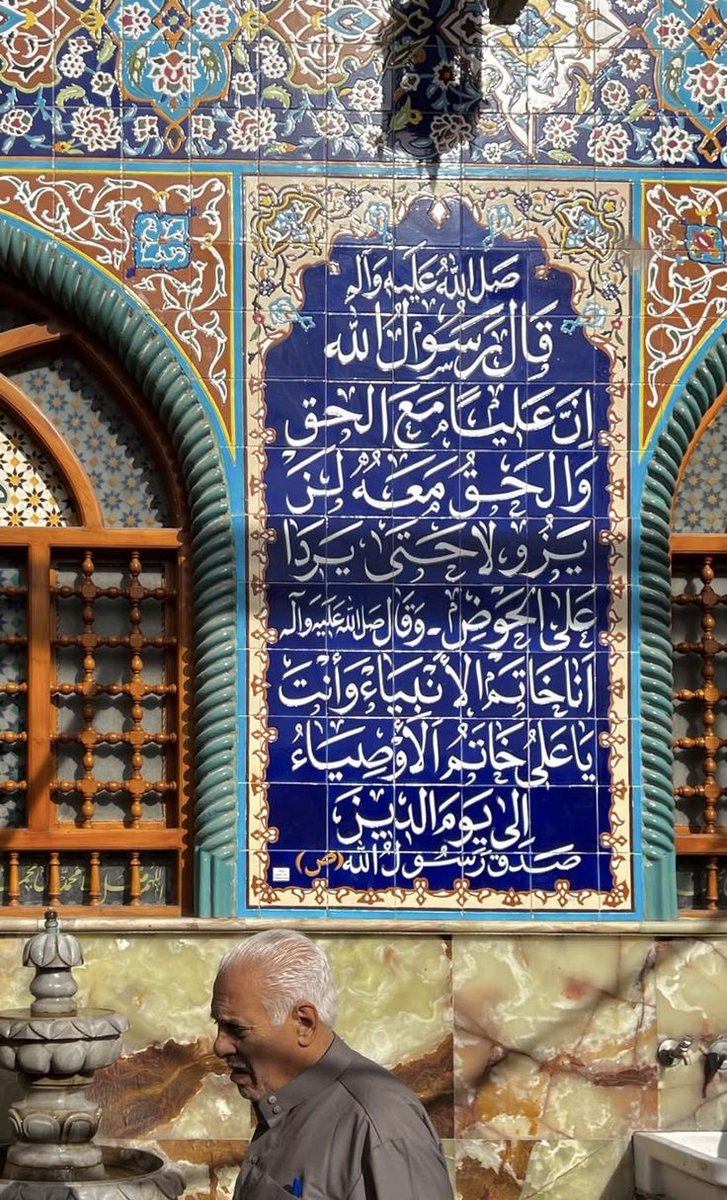 صَلَّ اللهُ عَلَيْهِ وَآلِهِ
قَالَ رَسُولُ الله
إنَّ عَلِيًّا مَعَ الحَق
وَالحَقُ مَعَهُ لَنْ
يَزُولا حَتىٰ يَرِدَا
عَلَىٰ الحَوضِ - وَقَال صَلَ اللهُ عَلَيْهِ وَآلِه
اَنَا خَاتِمُ الأنْبِيَاءْ وَأَنْتَ
يَا عَلِيُ خَاتَمُ الأوْصِيَاءُ
إلَىٰ يَوْمِ الدِيْنْ
صَدَقَ رَسُولُ الله (ص)
اللهم صل على محمد